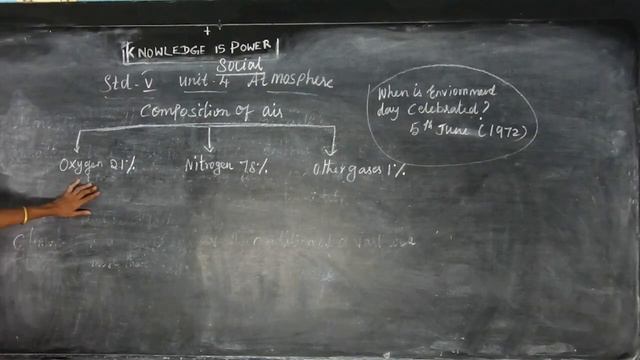 KNOWLEDGE IS POWER
Social
Std - V Unit - 4 Atmosphere
Composition of air
Oxygen 21% Nitrogen 78% Other gases 1%
When is Enviornment
day Celebrated?
5th June (1972)